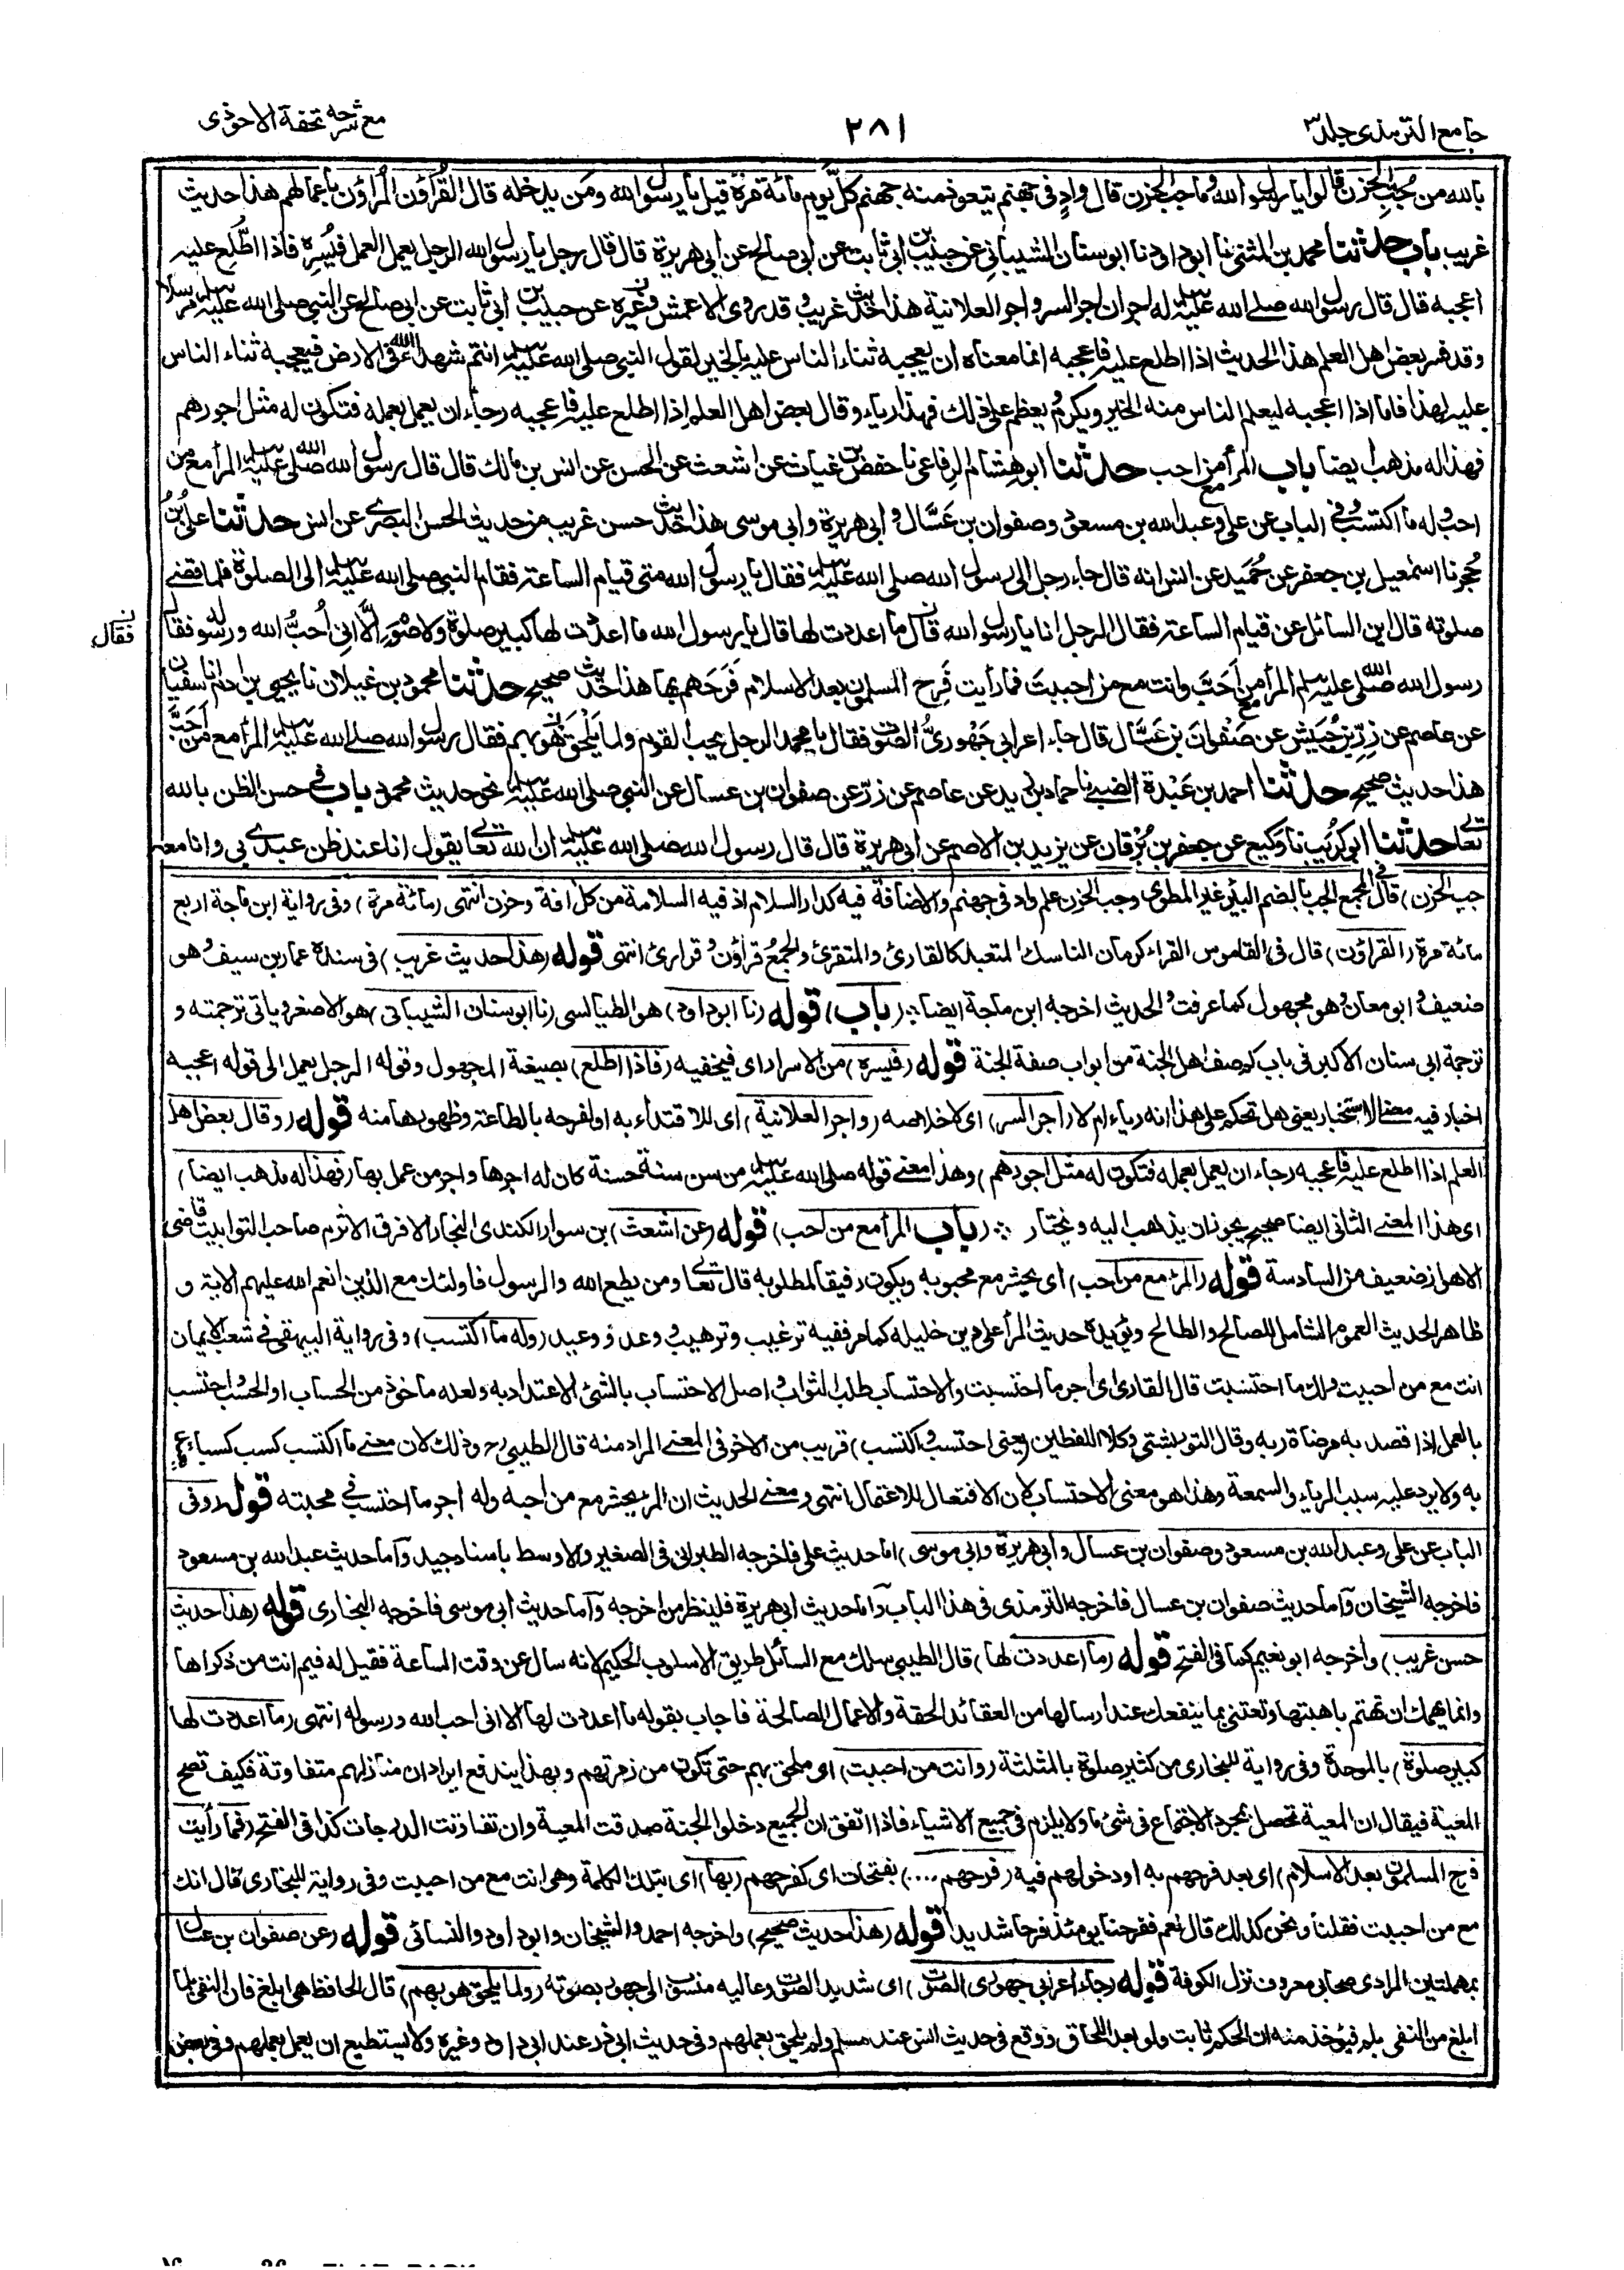 جامع الترمذي جلد ٣
٢٨١
مع شرحه تحفة الاحوذى
بالله من جُبّ الحزن قالوا يا رسول الله وما جب الحزن قال وادٍ فى جهنم يتعوذ منه جهنم كلَّ يوم مائة مرة قيل يا رسول الله ومَن يدخله قال القُرّاؤن المُراؤن باعمالهم هذا حديث
غريب باب حدثنا محمد بن المثنى نا ابو داود نا ابو سنان الشيبانى عن حبيب بن ابى ثابت عن ابى صالح عن ابى هريرة قال قال رجل يا رسول الله الرجل يعمل العمل فيُسِره فاذا اطُّلع عليه
اعجبه قال قال رسول الله صلى الله عليه وسلم له اجران اجر السر و اجر العلانية هذا حديث غريب و قد روى الاعمش وغيره عن حبيب بن ابى ثابت عن ابى صالح عن النبى صلى الله عليه وسلم مرسلا
وقد فسر بعض اهل العلم هذا الحديث اذا اطلع عليه فاعجبه انما معناه ان يعجبه ثناء الناس عليه بالخير لقول النبى صلى الله عليه وسلم انتم شهداء الله فى الارض فيعجبه ثناء الناس
عليه لهذا فاما اذا اعجبه ليعلم الناس منه الخير ويكرم ويعظم على ذلك فهذا رياء وقال بعض اهل العلم اذا اطلع عليه فاعجبه رجاء ان يعمل بعمله فتكون له مثل اجورهم
فهذا له مذهب ايضا باب المرأ مع من احب حدثنا ابو هشام الرفاعى نا حفص بن غياث عن اشعث عن الحسن عن انس بن مالك قال قال رسول الله صلى الله عليه وسلم المرأ مع من
احب وله ما اكتسب وفى الباب عن على وعبد الله بن مسعود وصفوان بن عَسَّال و ابى هريرة وابى موسى هذا حديث حسن غريب من حديث الحسن البصرى عن انس حدثنا على بن
حُجر نا اسمعيل بن جعفر عن حُمَيد عن انس انه قال جاء رجل الى رسول الله صلى الله عليه وسلم فقال يا رسول الله متى قيام الساعة فقام النبى صلى الله عليه وسلم الى الصلوة فلما قضى
صلوته قال اين السائل عن قيام الساعة فقال الرجل انا يا رسول الله قال ما اعددت لها قال يا رسول الله ما اعددت لها كبير صلوة ولا صَوْم اِلَّا انى اُحبُّ الله ورسوله فقال
فقال
رسول الله صلى الله عليه وسلم المرأ مع من اَحَبَّ وانت مع من احببتَ فما رأيت فَرِح المسلمون بعد الاسلام فَرَحَهم بها هذا حديث صحيح حدثنا محمود بن غيلان نا يحيى بن ادم نا سفيان
عن عاصم عن زِرّ بن حُبَيش عن صَفْوانَ بن عَسَّال قال جاء اعرابى جَهْورىُّ الصوت فقال يا محمد الرجل يحب القوم ولما يَلْحَق هو بهم فقال رسول الله صلى الله عليه وسلم المرأ مع من اَحَبَّ
هذا حديث صحيح حدثنا احمد بن عَبْدة الضبى نا حماد بن زيد عن عاصم عن زرّ عن صفوان بن عسال عن النبى صلى الله عليه وسلم نحو حديث محمود باب فى حسن الظن بالله
تعالى حدثنا ابو كُرَيب نا وكيع عن جعفر بن بُرْقان عن يزيد بن الاصم عن ابى هريرة قال قال رسول الله صلى الله عليه وسلم ان الله تعالى يقول انا عند ظن عبدى بى وانا معه
جب الحزن) قال فى المجمع الجب بالضم البئر غير المطوى وجب الحزن علم واد فى جهنم والاضافة فيه كدار السلام اذ فيه السلامة من كل افة وحزن انتهى (مائة مرة) وفى رواية ابن ماجة اربع
مائة مرة (القراؤن) قال فى القاموس القراء كرمان الناسك المتعبد كالقارئ والمتقرئ والجمع قراؤن وقرارئ انتهى قوله (هذا حديث غريب) فى سنده عمار بن سيف وهو
ضعيف و ابو معان وهو مجهول كما عرفت والحديث اخرجه ابن ماجة ايضا (باب) قوله (نا ابو داود) هو الطيالسى (نا ابو سنان الشيبانى) هو الاصغر وياتى ترجمته و
ترجمة ابى سنان الاكبر فى باب كم صف اهل الجنة من ابواب صفة الجنة قوله (فيسره) من الاسرار اى فيخفيه (فاذا اطلع) بصيغة المجهول وقوله الرجل يعمل الى قوله اعجبه
اخبار فيه معنى الاستخبار يعنى هل تحكم على هذا انه رياء ام لا (اجر السر) اى لاخلاصه (واجر العلانية) اى للاقتداء به او لفرحه بالطاعة وظهورها منه قوله (وقال بعض اهل
العلم اذا اطلع عليه فاعجبه رجاء ان يعمل بعمله فتكون له مثل اجورهم) وهذا معنى قوله صلى الله عليه وسلم من سن سنة حسنة كان له اجرها واجر من عمل بها (فهذا له مذهب ايضا)
اى هذا المعنى الثانى ايضا صحيح يجوز ان يذهب اليه ويختار (باب المرأ مع من احب) قوله (عن اشعث) بن سوار الكندى النجار الافرق الاثرم صاحب التوابيت قاضى
الاهواز ضعيف من السادسة قوله (المرء مع من احب) اى يحشر مع محبوبه ويكون رفيقا لمطلوبه قال تعالى ومن يطع الله والرسول فاولئك مع الذين انعم الله عليهم الاية و
ظاهر الحديث العموم الشامل للصالح والطالح ويؤيده حديث المرأ على دين خليله كما مر ففيه ترغيب وترهيب ووعد ووعيد (وله ما اكتسب) وفى رواية البيهقى فى شعب الايمان
انت مع من احببت ولك ما احتسبت قال القارى اى اجر ما احتسبت والاحتساب طلب الثواب واصل الاحتساب بالشئ الاعتداد به ولعله ماخوذ من الحساب او الحسب واحتسب
بالعمل اذا قصد به مرضاة ربه وقال التوربشتى وكلا اللفظين (يعنى احتسب واكتسب) قريب من الاخر فى المعنى المراد منه قال الطيبى رح وذلك لان معنى ما اكتسب كسب كسبا يعتد
به ولا يرد عليه سبب الرياء والسمعة وهذا هو معنى الاحتساب لان الافتعال للاعتمال انتهى ومعنى الحديث ان المرء يحشر مع من احبه وله اجر ما احتسب فى محبته قوله (وفى
الباب عن على وعبد الله بن مسعود وصفوان بن عسال وابى هريرة وابى موسى) اما حديث على فاخرجه الطبرانى فى الصغير والاوسط باسناد جيد وآما حديث عبد الله بن مسعود
فاخرجه الشيخان وآما حديث صفوان بن عسال فاخرجه الترمذى فى هذا الباب وآما حديث ابى هريرة فلينظر من اخرجه وآما حديث ابى موسى فاخرجه البخارى قوله (هذا حديث
حسن غريب) واخرجه ابو نعيم كما فى الفتح قوله (ما اعددت لها) قال الطيبى سلك مع السائل طريق الاسلوب الحكيم لانه سال عن وقت الساعة فقيل له فيم انت من ذكراها
وانما يهمك ان تهتم باهبتها وتعتنى بما ينفعك عند ارسالها من العقائد الحقة والاعمال الصالحة فاجاب بقوله ما اعددت لها الا انى احب الله ورسوله انتهى (ما اعددت لها
كبير صلوة) بالموحدة وفى رواية للبخارى من كثير صلوة بالمثلثة (وانت مع من احببت) اى ملحق بهم حتى تكون من زمرتهم وبهذا يندفع ايراد ان منازلهم متفاوتة فكيف تصح
المعية فيقال ان المعية تحصل بمجرد الاجتماع فى شئ ما ولا يلزم فى جميع الاشياء فاذا اتفق ان الجميع دخلوا الجنة صدقت المعية وان تفاوتت الدرجات كذا فى الفتح (فما رأيت
فرح المسلمون بعد الاسلام) اى بعد فرحهم به او دخولهم فيه (فرحهم ....) بفتحات اى كفرحهم (بها) اى بتلك الكلمة وهى انت مع من احببت وفى رواية للبخارى قال انك
مع من احببت فقلنا ونحن كذلك قال نعم ففرحنا يومئذ فرحا شديدا قوله (هذا حديث صحيح) واخرجه احمد والشيخان وابو داود والنسائى قوله (عن صفوان بن عسال)
بمهملتين المرادى صحابى معروف نزل الكوفة قوله (جاء اعرابى جهورى الصوت) اى شديد الصوت وعاليه منسوب الى جهور بصوته (ولما يلحق هو بهم) قال الحافظ هى ابلغ فان النفى بلما
ابلغ من النفى بلم فيؤخذ منه ان الحكم ثابت ولو بعد اللحاق ووقع فى حديث انس عند مسلم ولم يلحق بعملهم وفى حديث ابى ذر عند ابى داود وغيره ولا يستطيع ان يعمل بعملهم وفى بعض